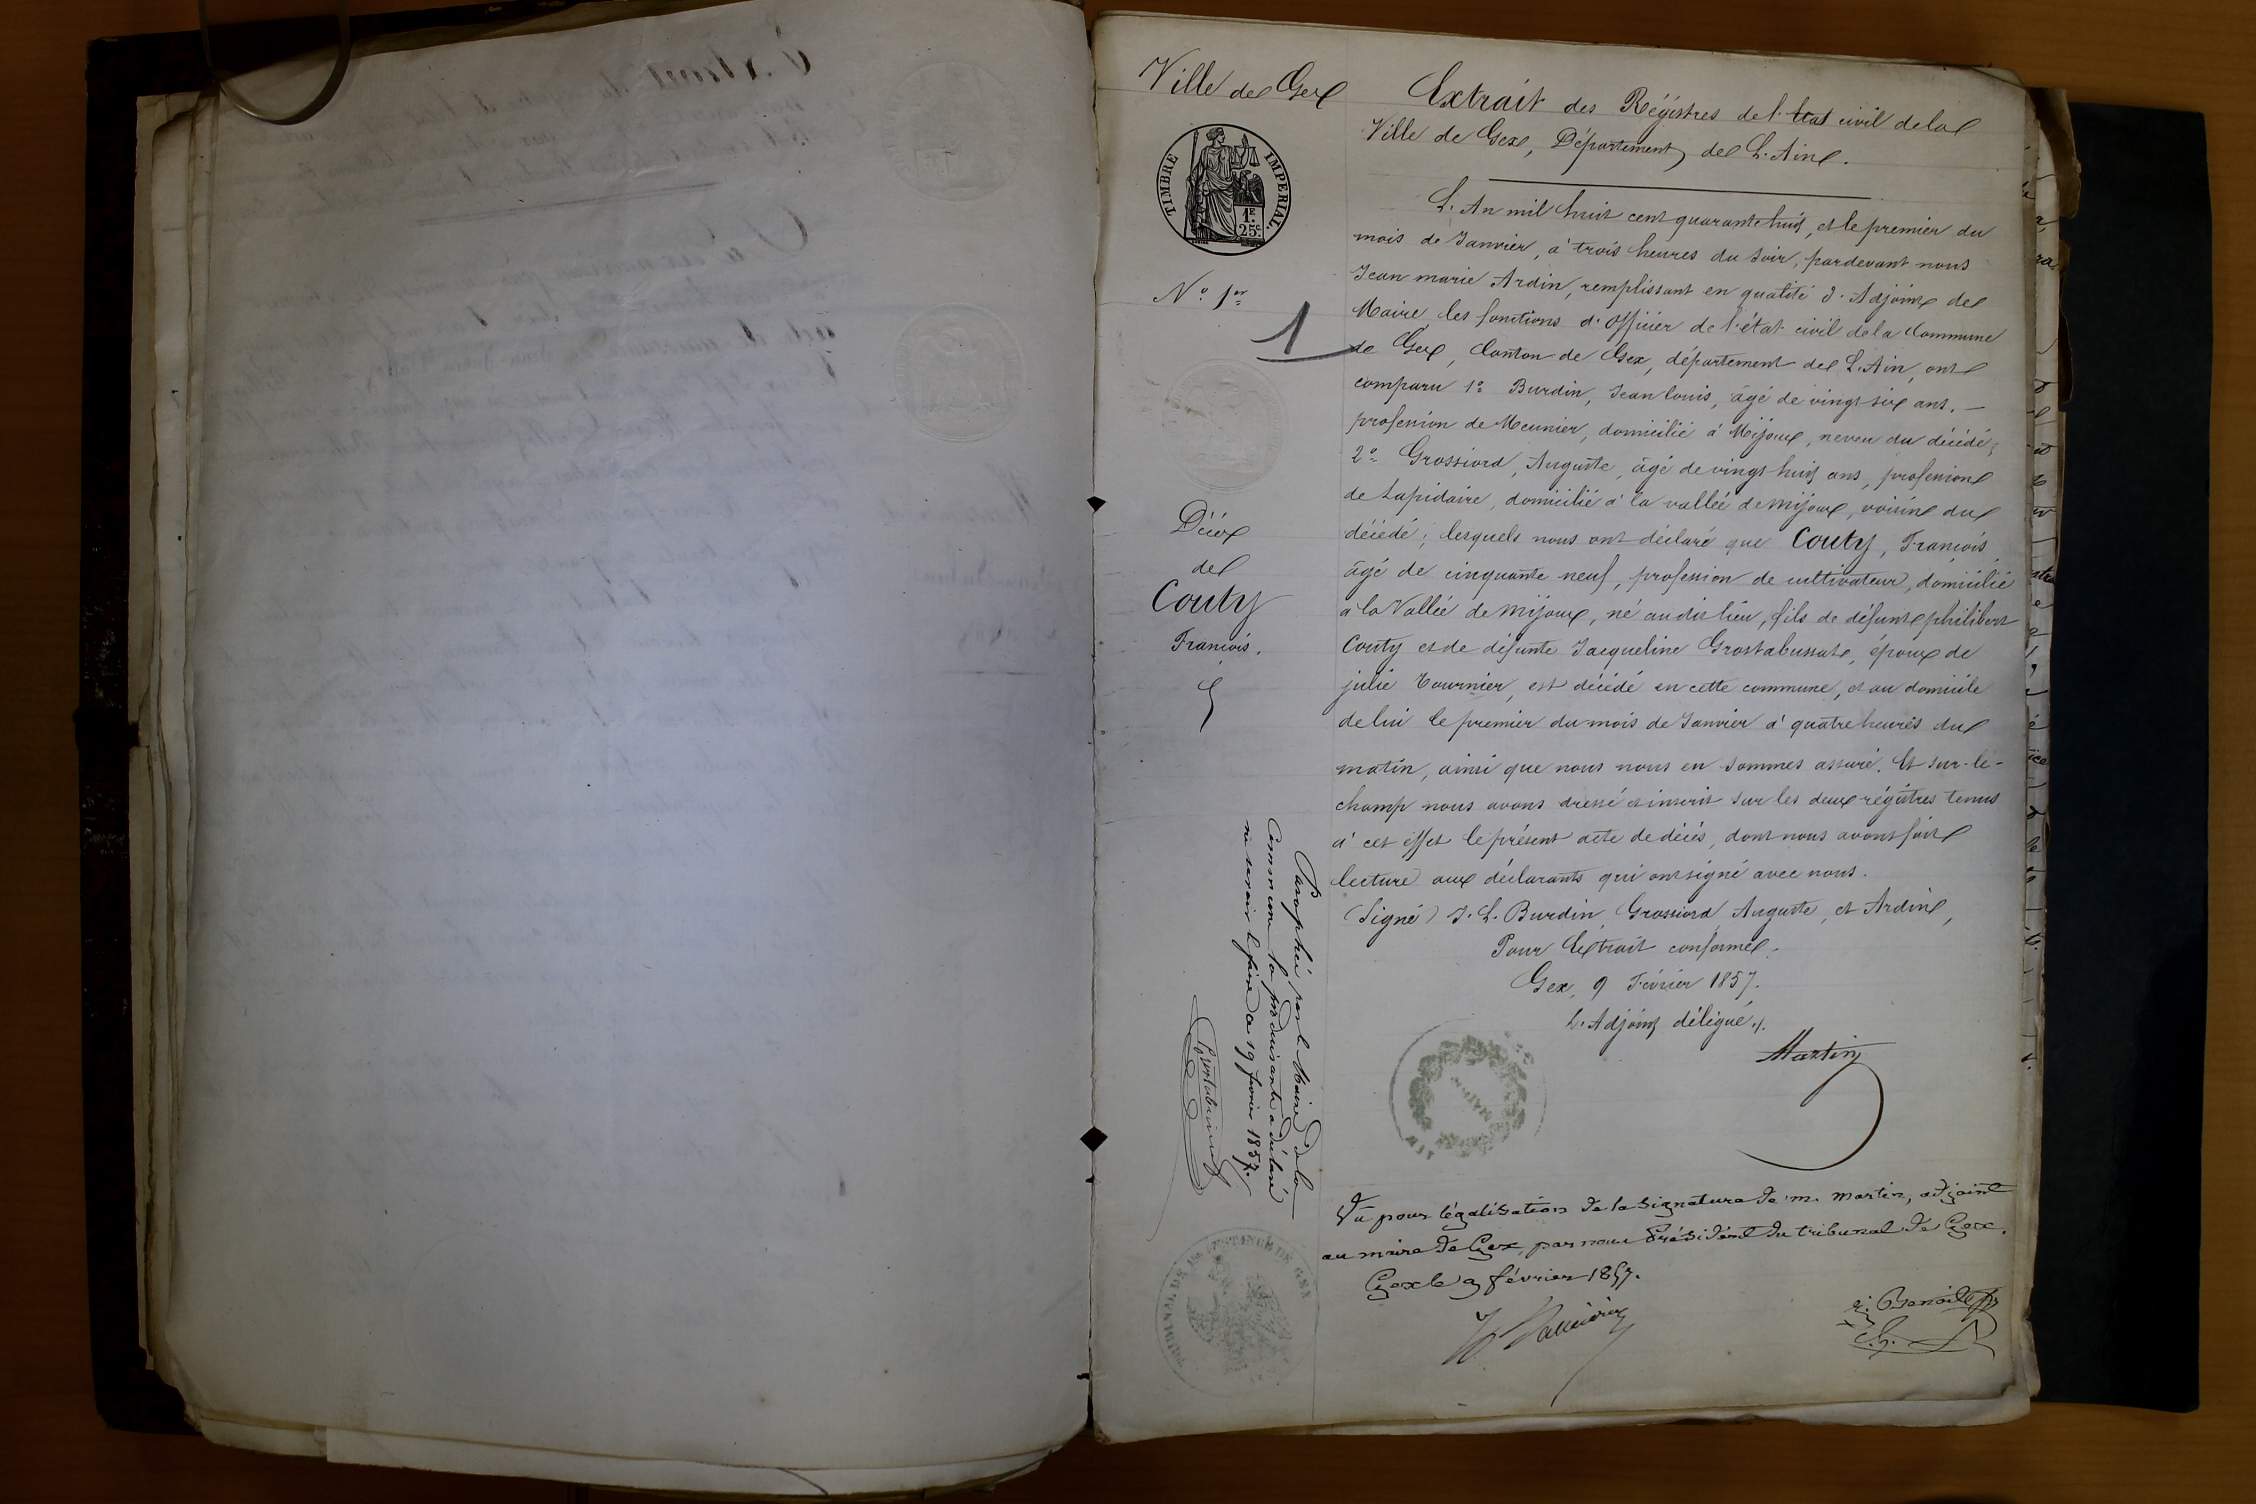 Ville de Gex
TIMBRE IMPERIAL.
1F.
25c.
No. 1er
1
Décès
de
Couty
François.
Extrait des Régistres de l'état civil de la
Ville de Gex, Département de L'Ain.
L'An mil huit cent quarante huit, et le premier du
mois de Janvier, à trois heures du soir, pardevant nous
Jean marie Ardin, remplissant en qualité d'Adjoint de
Maire les fonctions d'officier de l'état civil de la Commune
de Gex, Canton de Gex, département de L'Ain, ont
comparu 1o Burdin, Jean louis, âgé de vingt six ans, —
profession de Meunier, domicilié à Mijoux, neveu du décédé;
2o Grossiord, Auguste, âgé de vingt huit ans, profession
de Lapidaire, domicilié à la vallée de Mijoux, voisin du
décédé; lesquels nous ont déclaré que Couty, François
âgé de cinquante neuf, profession de cultivateur, domicilié
à la Vallée de Mijoux, né au dit lieu, fils de défunt philibert
Couty et de défunte Jacqueline Grostabussat, époux de
julie Tournier, est décédé en cette commune, et au domicile
de lui le premier du mois de Janvier à quatre heures du
matin, ainsi que nous nous en sommes assuré. Et sur-le-
champ nous avons dressé et inscrit sur les deux régistres tenus
à cet effet le présent acte de décès, dont nous avons fait
lecture aux déclarants qui ont signé avec nous.
(Signé) J. L. Burdin, Grossiord Auguste, et Ardin,
Pour Extrait conforme.
Gex, 9 Février 1857.
L'Adjoint délégué,
Martin
MAIRIE
Paraphé par le Maire de la
Commune la produisante a déclaré
ne savoir le faire a 19 février 1857.
Vu pour légalisation de la signature de m. martin, adjoint
au maire de Gex, par nous Président du tribunal de Gex.
Gex le 9 février 1857.
TRIBUNAL DE 1re INSTANCE DE GEX
Benoit